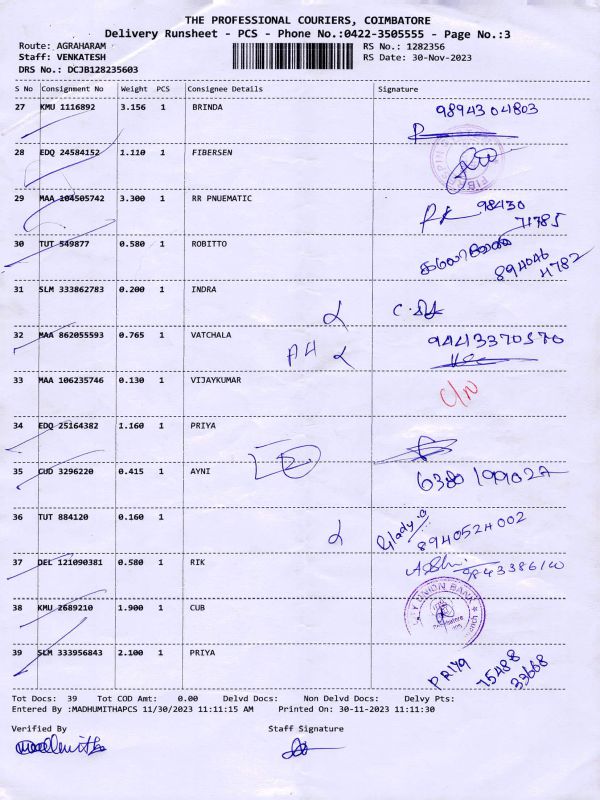 THE PROFESSIONAL COURIERS, COIMBATORE
Delivery Runsheet - PCS - Phone No.:0422-3505555 - Page No.:3
Route: AGRAHARAM RS No.: 1282356
Staff: VENKATESH RS Date: 30-Nov-2023
DRS No.: DCJB128235603
S No Consignment No Weight PCS Consignee Details Signature
27 KMU 1116892 3.156 1 BRINDA 9894304803
28 EDQ 24584152 1.110 1 FIBERSEN
29 MAA 104505742 3.300 1 RR PNUEMATIC 98430
71785
30 TUT 549877 0.580 1 ROBITTO
894046
4782
31 SLM 333862783 0.200 1 INDRA
32 MAA 862055593 0.765 1 VATCHALA A4 9443370570
33 MAA 106235746 0.130 1 VIJAYKUMAR C/N
34 EDQ 25164382 1.160 1 PRIYA
35 CUD 3296220 0.415 1 AYNI
36 TUT 884120 0.160 1 8940524002
37 DEL 121090381 0.580 1 RIK
38 KMU 2689210 1.900 1 CUB UNION BANK
39 SLM 333956843 2.100 1 PRIYA PRIYA 75488
33668
Tot Docs: 39 Tot COD Amt: 0.00 Delvd Docs: Non Delvd Docs: Delvy Pts:
Entered By :MADHUMITHAPCS 11/30/2023 11:11:15 AM Printed On: 30-11-2023 11:11:30
Verified By Staff Signature